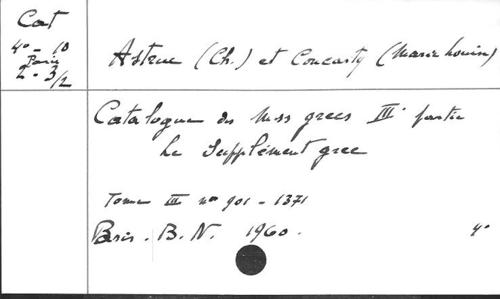 Cat
4° - 10
Paris
2 - 3/2
Astruc (Ch.) et Concasty (Marie Louise)
Catalogue des Mss grecs III partie
Le Supplément grec
Tome III nos 901 - 1371
Paris. B.N. 1960.
4°